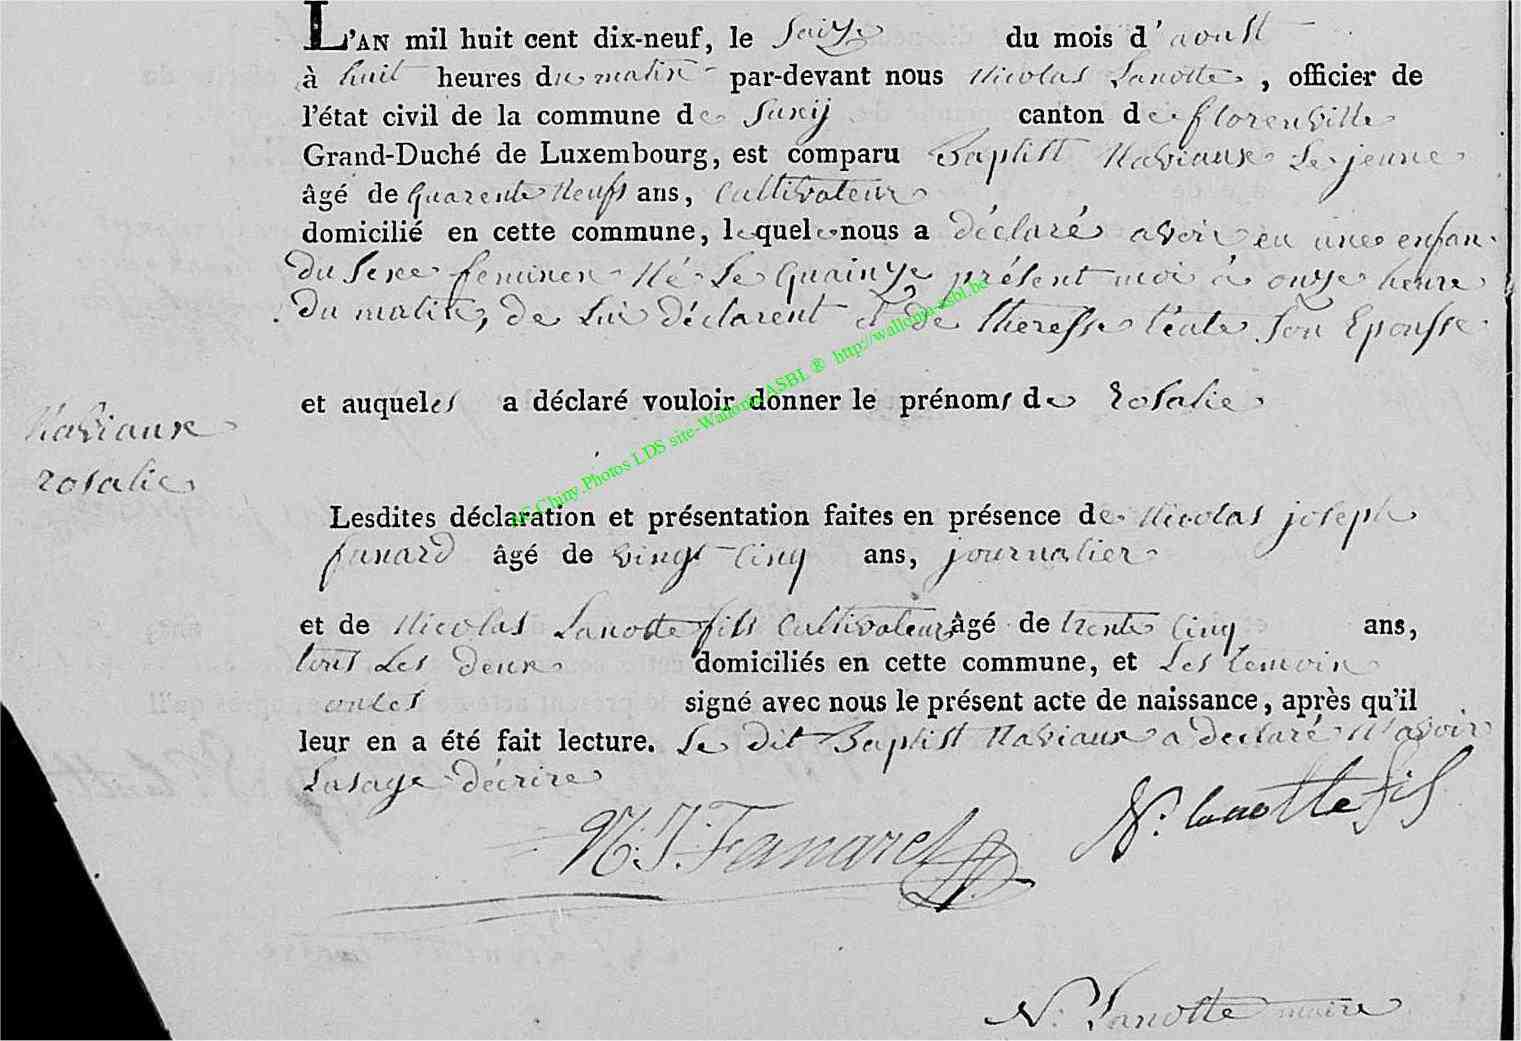 L'AN mil huit cent dix-neuf, le SaiZe du mois d'aoust
à huit heures du matin par-devant nous Nicolas Lanotte, officier de
l'état civil de la commune de Suxij canton de florenville
Grand-Duché de Luxembourg, est comparu Baptist Naviaux Le jeune
âgé de quarente neufs ans, Cultivateur
domicilié en cette commune, lequel nous a déclaré avoir eu une enfan
du Sexe feminen Né Le Quainze présent moi à onze heure
du matin, de Lui déclarent et de theresse son Epousse
et auqueles a déclaré vouloir donner le prénoms de rosalie
Naviaux
rosalie
Lesdites déclaration et présentation faites en présence de Nicolas joseph
fanard âgé de vingt Cinq ans, journalier
et de Nicolas Lanotte fils Cultivateur âgé de trente Cinq ans,
tous Les deux domiciliés en cette commune, et Les temoin
ontes signé avec nous le présent acte de naissance, après qu'il
leur en a été fait lecture. Le dit Baptist Naviaux a declaré N'avoir
Lusage décrire
N: J: Fanard
N: lanotte fils
N: Lanotte maire
AG Cluny.Photos LDS site-Wallonia ASBL ® http://wallonia-asbl.be